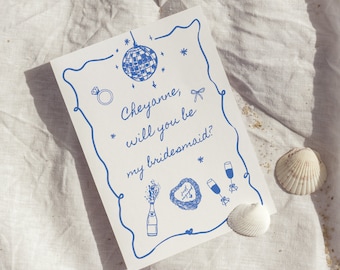 Cheyanne,
will you be
my bridesmaid?